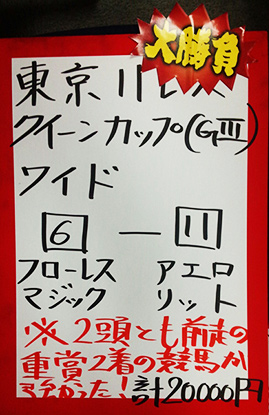 大勝負
東京11レース
クイーンカップ(GⅢ)
ワイド
6 ー 11
フローレス アエロ
マジック リット
※2頭とも前走の
重賞2着の競馬が
マチがった! 計20000円